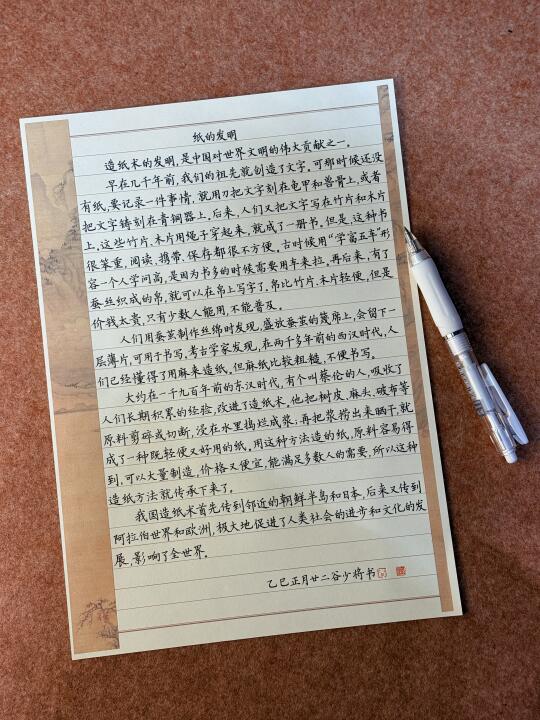 纸的发明
造纸术的发明,是中国对世界文明的伟大贡献之一。
早在几千年前,我们的祖先就创造了文字。可那时候还没
有纸,要记录一件事情,就用刀把文字刻在龟甲和兽骨上,或者
把文字铸刻在青铜器上。后来,人们又把文字写在竹片和木片
上。这些竹片、木片用绳子穿起来,就成了一册书。但是,这种书
很笨重,阅读、携带、保存都很不方便。古时候用“学富五车”形
容一个人学问高,是因为书多的时候需要用车来拉。再后来,有了
蚕丝织成的帛,就可以在帛上写字了。帛比竹片、木片轻便,但是
价钱太贵,只有少数人能用,不能普及。
人们用蚕茧制作丝绵时发现,盛放蚕茧的篾席上,会留下一
层薄片,可用于书写。考古学家发现,在两千多年前的西汉时代,人
们已经懂得了用麻来造纸。但麻纸比较粗糙,不便书写。
大约在一千九百年前的东汉时代,有个叫蔡伦的人,吸收了
人们长期积累的经验,改进了造纸术。他把树皮、麻头、破布等
原料剪碎或切断,浸在水里捣烂成浆;再把浆捞出来晒干,就
成了一种既轻便又好用的纸。用这种方法造的纸,原料容易得
到,可以大量制造,价格又便宜,能满足多数人的需要,所以这种
造纸方法就传承下来了。
我国造纸术首先传到邻近的朝鲜半岛和日本,后来又传到
阿拉伯世界和欧洲,极大地促进了人类社会的进步和文化的发
展,影响了全世界。
乙巳正月廿二谷少将书